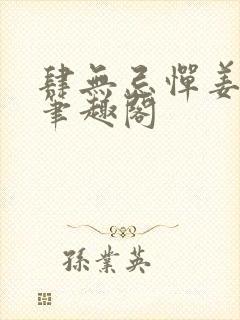 肆無忌憚姜
筆趣閣
孫業英